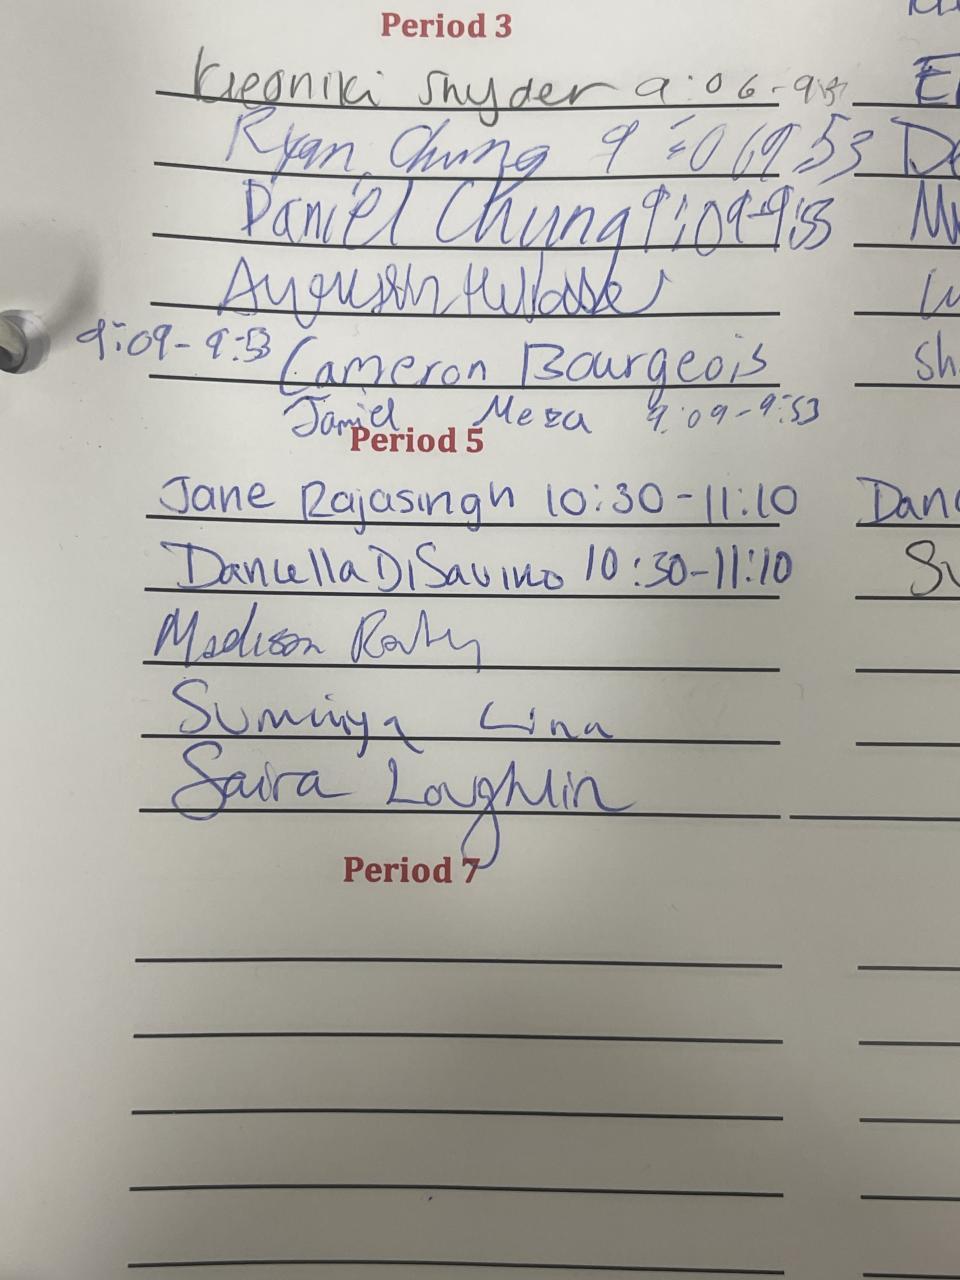 Period 3
Kleoniki Snyder 9:06-9:53
Ryan Chung 9:06 9:53
Daniel Chung 9:09-9:53
August
9:09-9:53 Cameron Bourgeois
Sh
Jamiel Meza 9:09-9:53
Period 5
Jane Rajasingh 10:30-11:10
Dan
Daniella DiSavino 10:30-11:10
Su
Madison
Sumiya Lina
Saira Loughlin
Period 7